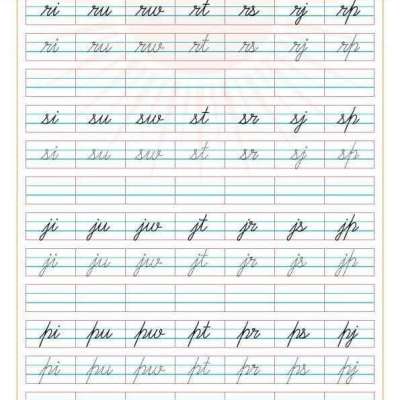 ri ru rw rt rs rj rp
ri ru rw rt rs rj rp
si su sw st sr sj sp
si su sw st sr sj sp
ji ju jw jt jr js jp
ji ju jw jt jr js jp
pi pu pw pt pr ps pj
pi pu pw pt pr ps pj